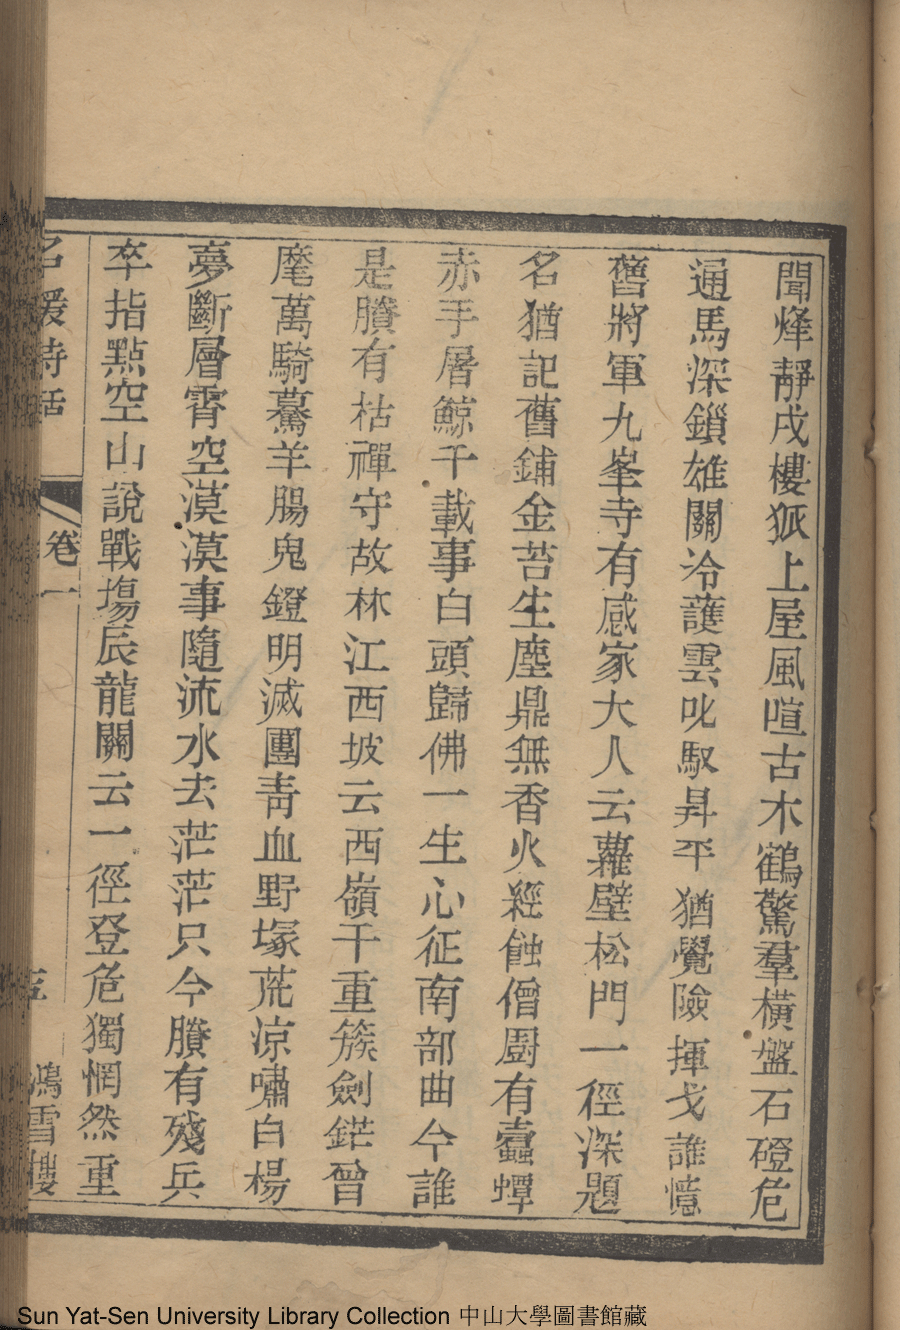 聞烽靜戍樓狐上屋風喧古木鶴驚羣橫盤石磴危
通馬深鎖雄關冷護雲叱馭昇平猶覺險揮戈誰憶
舊將軍九峯寺有感家大人云蘿壁松門一徑深題
名猶記舊鋪金苔生塵鼎無香火經蝕僧厨有蠹蟫
赤手屠鯨千載事白頭歸佛一生心征南部曲今誰
是賸有枯禪守故林江西坡云西嶺千重簇劍鋩曾
麾萬騎驀羊腸鬼鐙明滅團靑血野塚荒涼嘯白楊
夢斷層霄空漠漠事隨流水去茫茫只今賸有殘兵
卒指點空山說戰塲辰龍關云一徑登危獨惘然重
名媛詩話
卷一
五
鴻雪樓
Sun Yat-Sen University Library Collection 中山大學圖書館藏